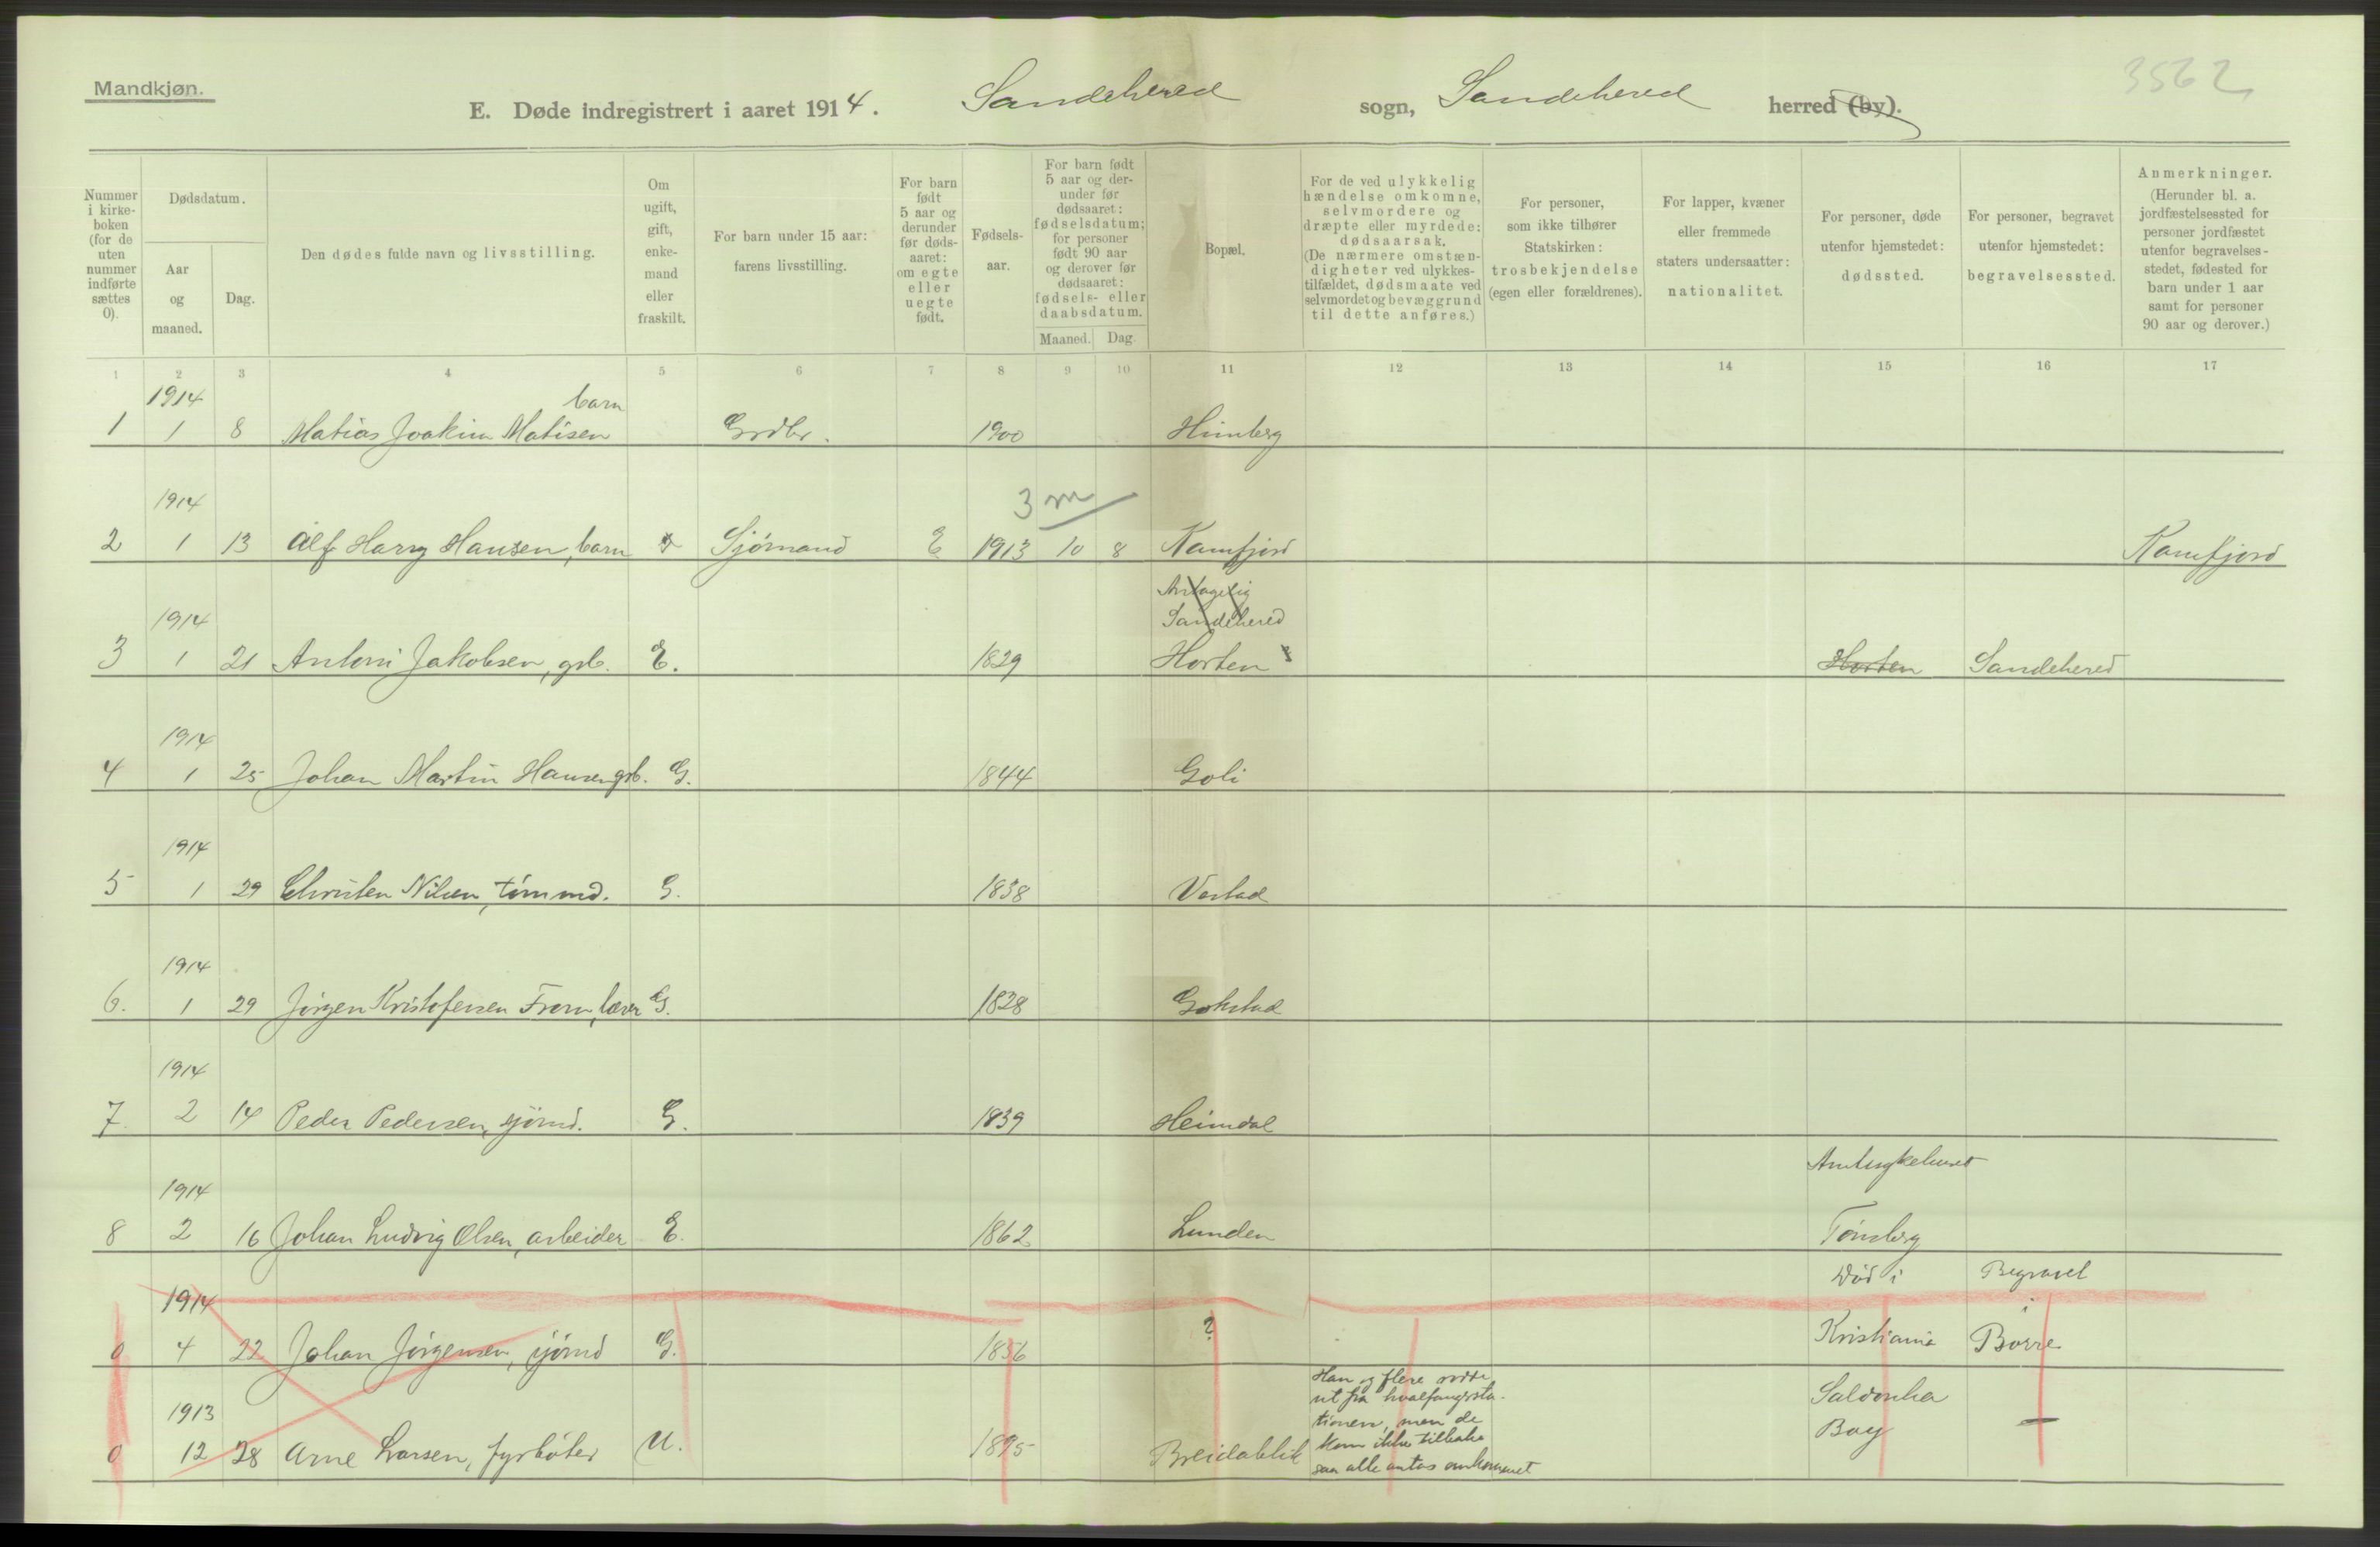 Mandkjøn.
3562
E. Døde indregistrert i aaret 1914. Sandehered sogn, Sandehered herred (by).
Nummer i kirke-boken (for de uten nummer indførte sættes 0).
Dødsdatum.
Aar og maaned.
Dag.
Den dødes fulde navn og livsstilling.
Om ugift, gift, enke-mand eller fraskilt.
For barn under 15 aar: farens livsstilling.
For barn født 5 aar og derunder før døds-aaret: om egte eller uegte født.
Fødsels-aar.
For barn født 5 aar og der-under før dødsaaret: fødselsdatum; for personer født 90 aar og derover før dødsaaret: fødsels- eller daabsdatum.
Maaned. Dag.
Bopæl.
For de ved ulykkelig hændelse omkomne, selvmordere og dræpte eller myrdede: dødsaarsak. (De nærmere omstæn-digheter ved ulykkes-tilfældet, dødsmaate ved selvmordet og bevæggrund til dette anføres.)
For personer, som ikke tilhører Statskirken: trosbekjendelse (egen eller forældrenes).
For lapper, kvæner eller fremmede staters undersaatter: nationalitet.
For personer, døde utenfor hjemstedet: dødssted.
For personer, begravet utenfor hjemstedet: begravelsessted.
Anmerkninger. (Herunder bl. a. jordfæstelsessted for personer jordfæstet utenfor begravelses-stedet, fødested for barn under 1 aar samt for personer 90 aar og derover.)
1 2 3 4 5 6 7 8 9 10 11 12 13 14 15 16 17
1914 barn
1 1 8 Matias Joakim Matisen Grdbr. 1900 Himberg
1914 3 m
2 1 13 Alf Harry Hansen, barn Sjømand E 1913 10 8 Kamfjord Kamfjord
Antagelig
1914 Sandehered
3 1 21 Antoni Jakobsen, grb. E. 1829 Horten Horten Sandehered
1914
4 1 25 Johan Martin Hansen grb. G. 1844 Goli
1914
5 1 29 Christen Nilsen, tømmd. G. 1838 Vestad
1914
6. 1 29 Jørgen Kristofersen From, lærer G. 1828 Gokstad
1914
7. 2 14 Peder Pedersen, sjømd. G. 1839 Heimdal
Amtsykehuset
1914
8 2 16 Johan Ludvig Olsen, arbeider E. 1862 Lunden Tønsberg
1914 Død i Begravet
0 4 22 Johan Jørgensen, sjømd G. 1856 ? Kristiania Borre
Han og flere rodde
ut fra hvalfangersta-
1913 tionen, men de Saldonha
0 12 28 Arne Larsen, fyrbøter U. 1895 Breidablik kom ikke tilbake Bay —
saa alle antas omkommet